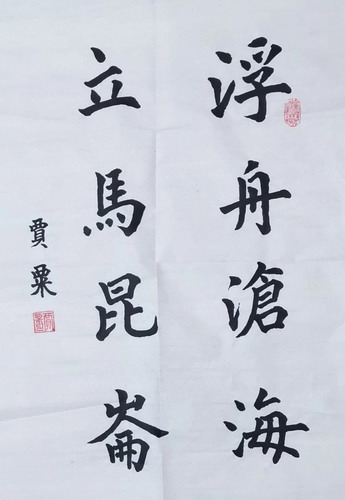 浮舟滄海
立馬昆崙
賈粟